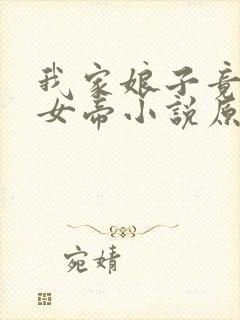 我家娘子竟
女帝小說原
宛婧